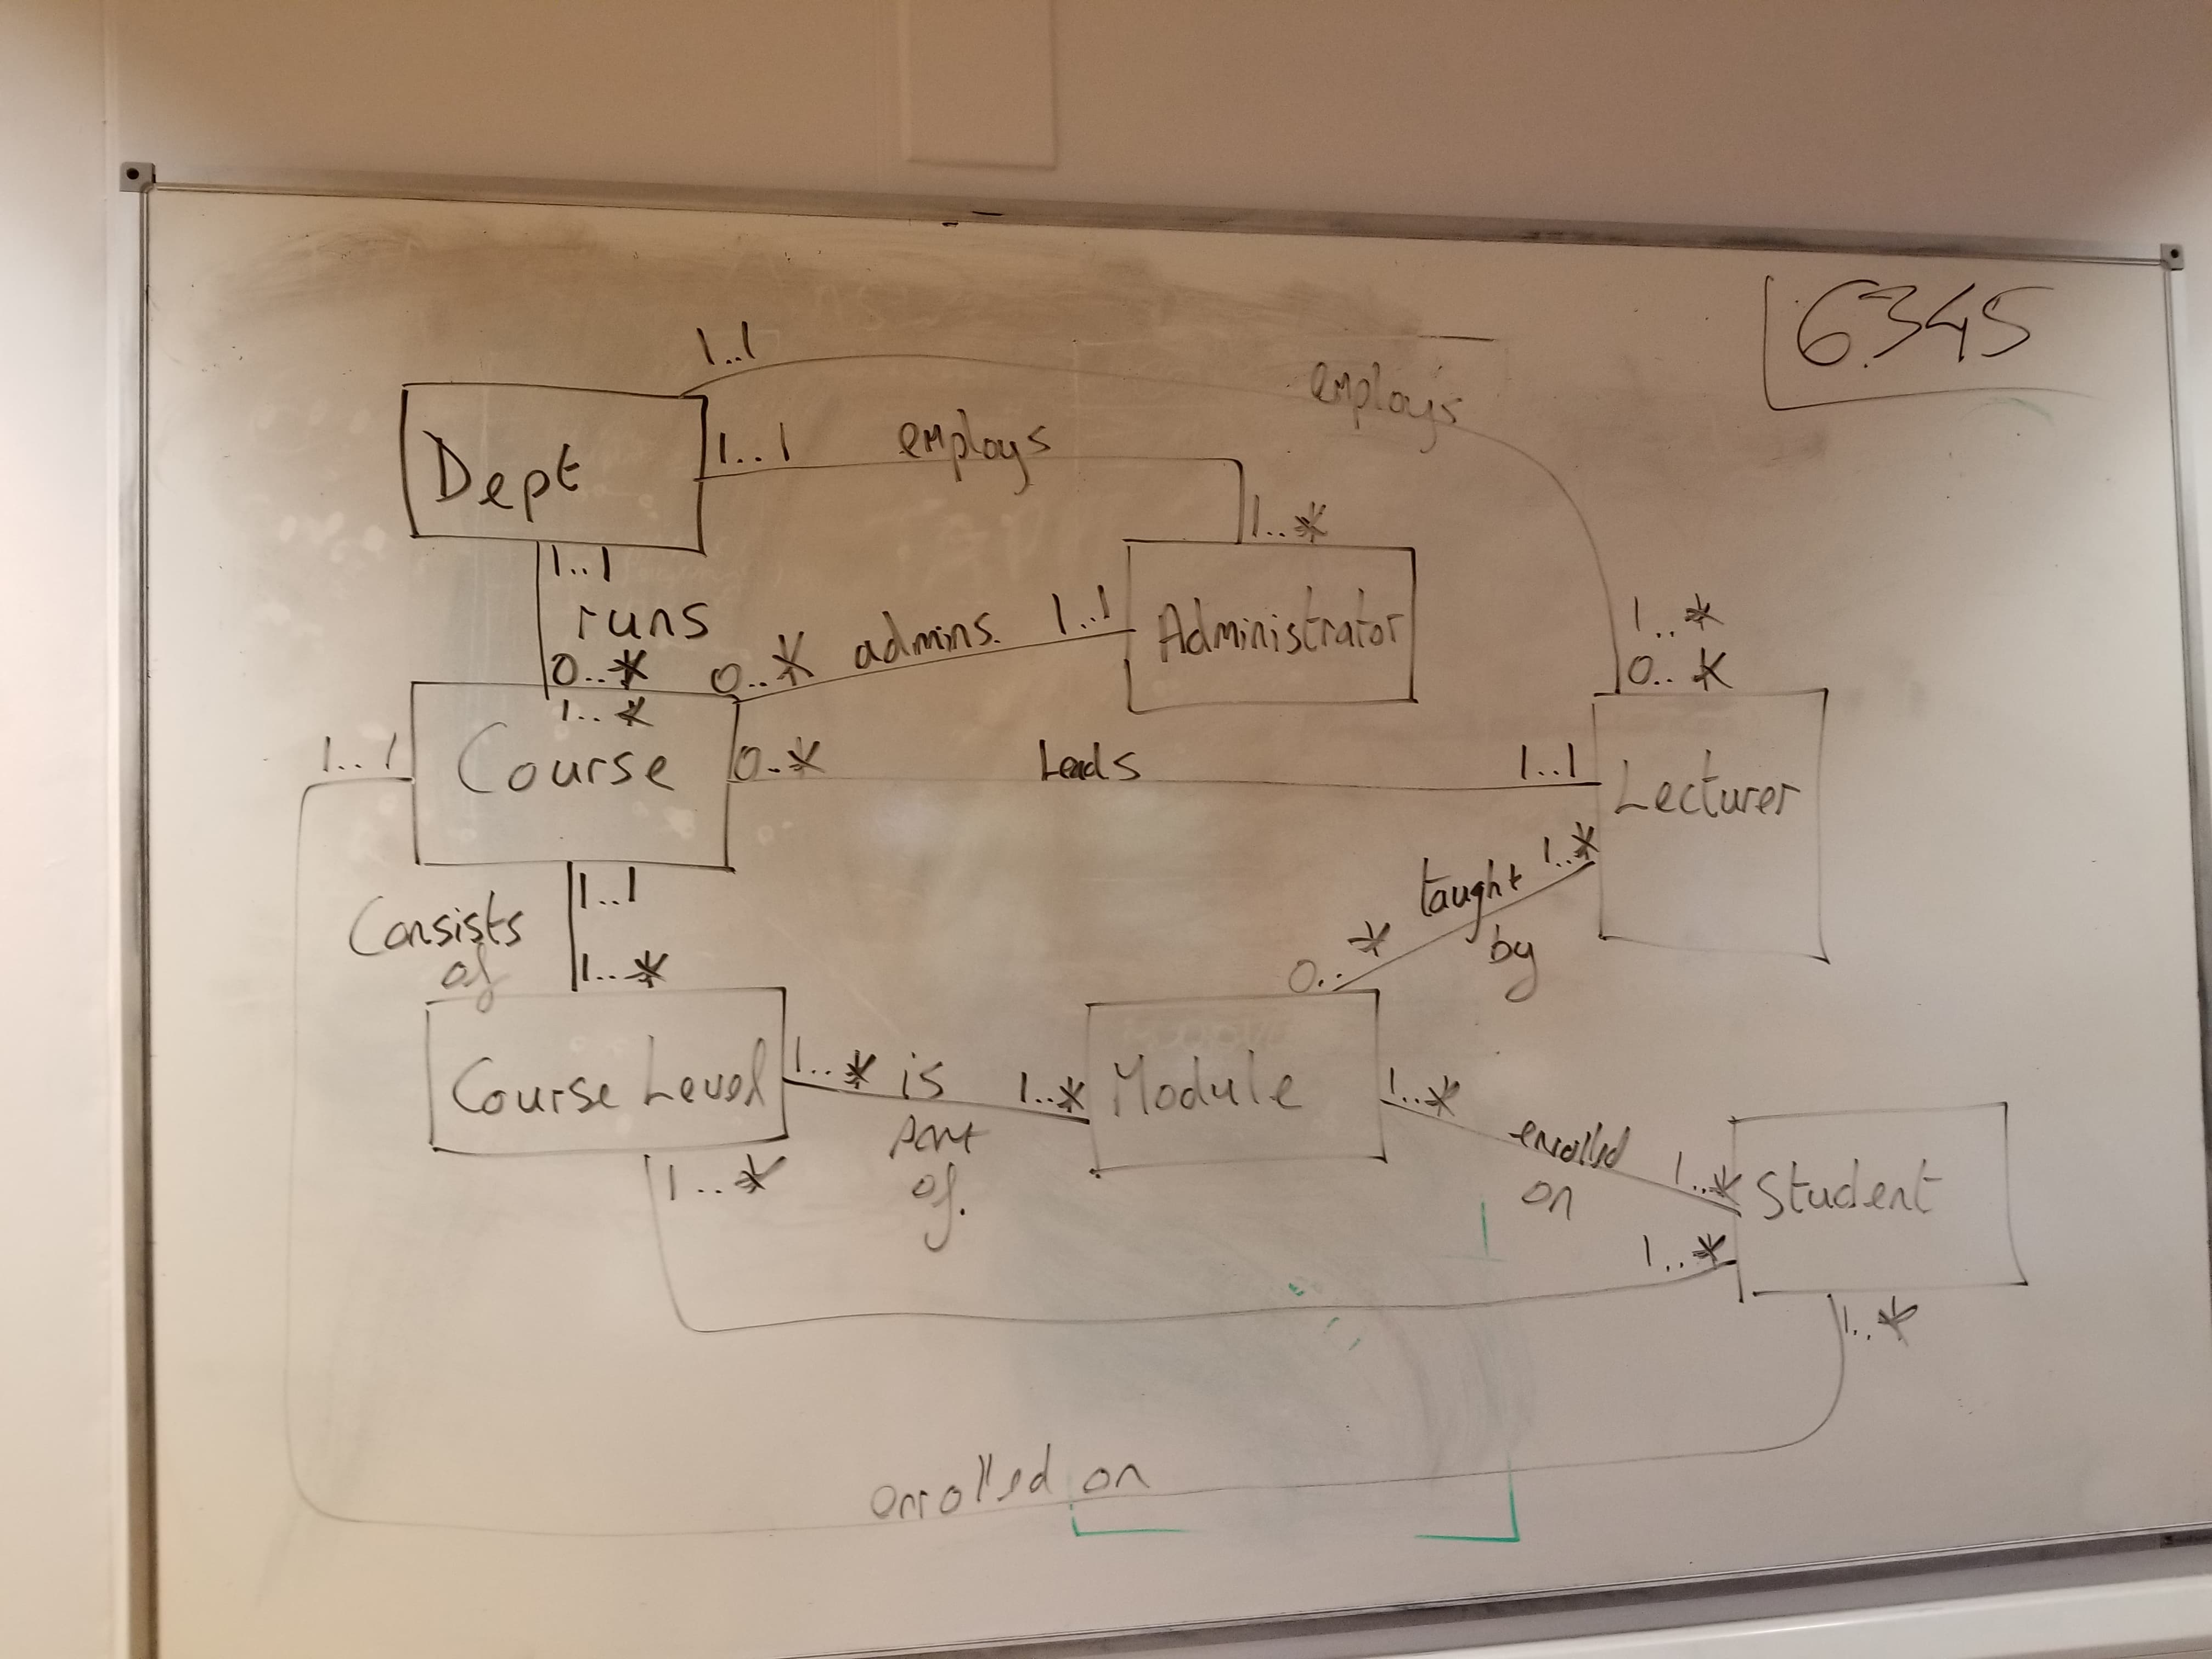 6345
1..1
employs
Dept
1..1 employs
1..*
1..1
runs
0..*
1..*
0..* admins. 1..1
Administrator
1..*
0..*
1..1
Course
0..* Leads 1..1
Lecturer
1..1
Consists
of
1..*
taught 1..*
by
0..*
Course Level
1..* is 1..*
part
of.
Module
1..*
enrolled
on
1..*
Student
1..*
1..*
1..*
enrolled on